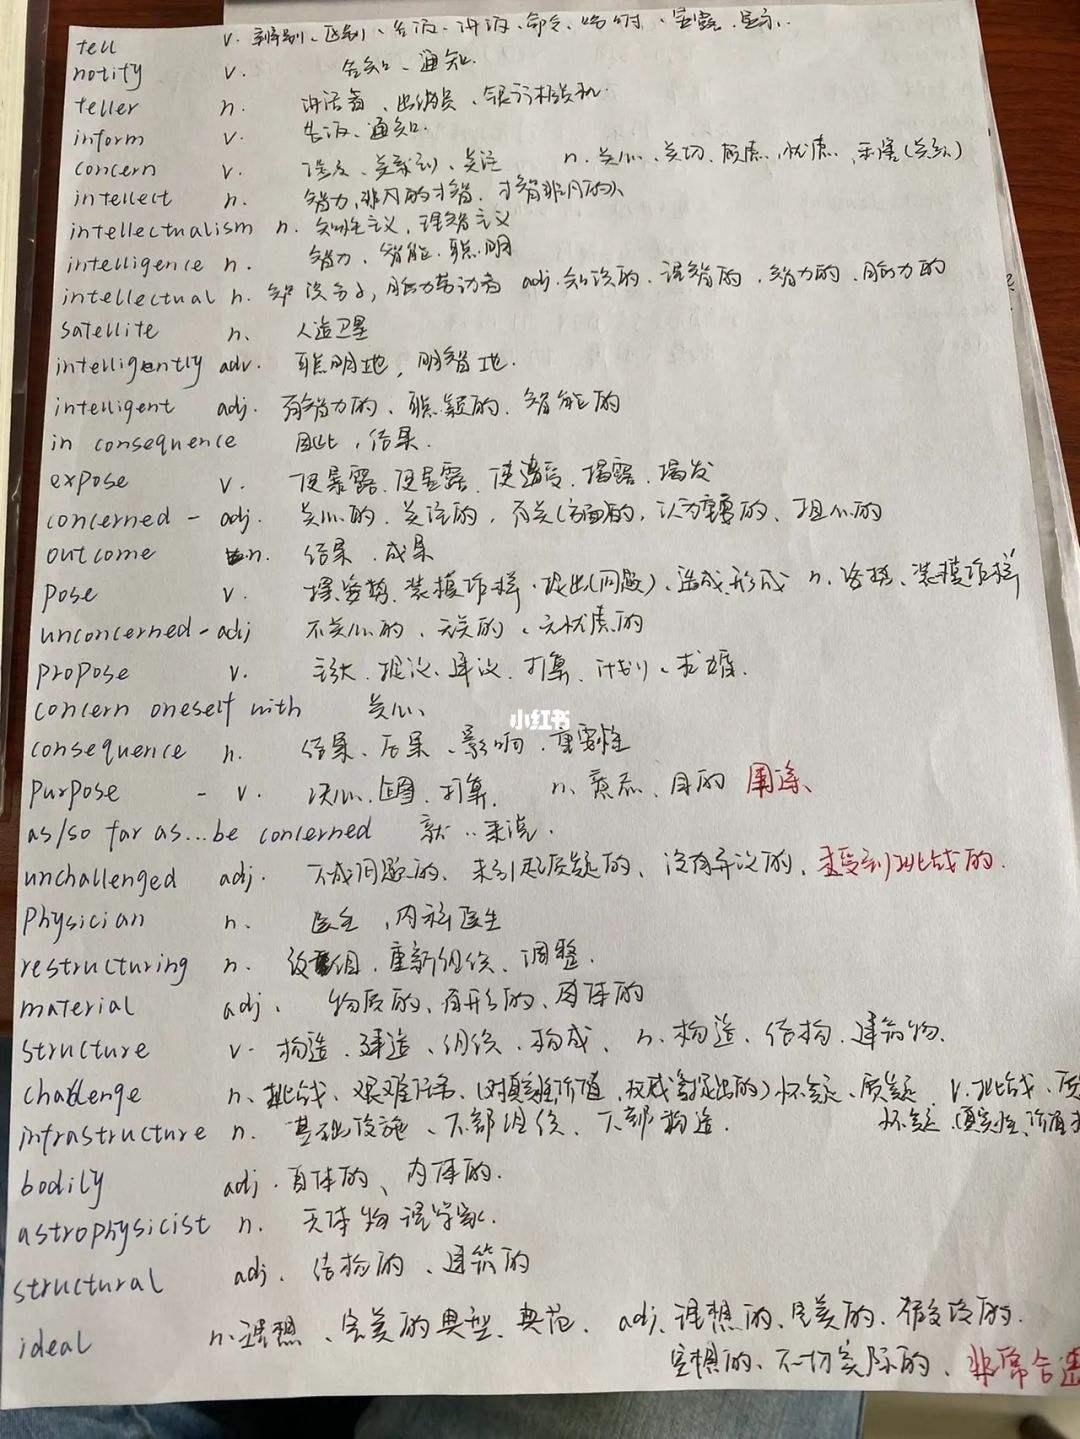 tell v. 辨别、区别、告诉、讲话、命令、吩咐、显露、显示.
notify v. 告知、通知.
teller n. 讲话者、出纳员、银行柜员机
inform v. 告诉、通知.
concern v. 涉及、关系到、关注 n. 关心、关切、顾虑、忧虑、利害(关系)
intellect n. 智力,非凡的才智.
intellectualism n. 知性主义,理智主义
intelligence n. 智力、智能、聪明
intellectual n. 知识分子,脑力劳动者 adj. 知识的、理智的、智力的、脑力的
satellite n. 人造卫星
intelligently adv. 聪明地,明智地.
intelligent adj. 有智力的、聪颖的、智能的
in consequence 因此,结果.
expose v. 使暴露、使显露、使遭受、揭露、揭发
concerned - adj. 关心的、关注的,有关(方面)的,认为重要的、担心的
outcome n. 结果、成果
pose v. 摆姿势、装模作样、提出(问题)、造成,形成 n. 姿势、装模作样
unconcerned - adj 不关心的、无关的、无忧虑的
propose v. 提议、建议、打算、计划、求婚.
concern oneself with 关心、
小红书
consequence n. 结果、后果、影响、重要性
purpose - v. 决心、企图、打算. n. 意志、目的 用途、
as/so far as...be concerned 就..来说.
unchallenged adj. 不成问题的、未引起质疑的、没有异议的、未受到挑战的.
physician n. 医生,内科医生
restructuring n. 重组、重新组织、调整.
material adj. 物质的、有形的、肉体的
structure v. 构造、建造、组织、构成、n. 构造、结构、建筑物.
challenge n. 挑战、艰难任务、(对真实性,价值,权威等提出的)怀疑、质疑 v. 挑战、质
怀疑(真实性、价值
infrastructure n. 基础设施、下部组织、下部构造.
bodily adj. 身体的、肉体的.
astrophysicist n. 天体物理学家.
structural adj. 结构的、建筑的
ideal n. 理想、完美的典型、典范、adj. 理想的、完美的、假设的.
空想的、不切实际的、非常合适